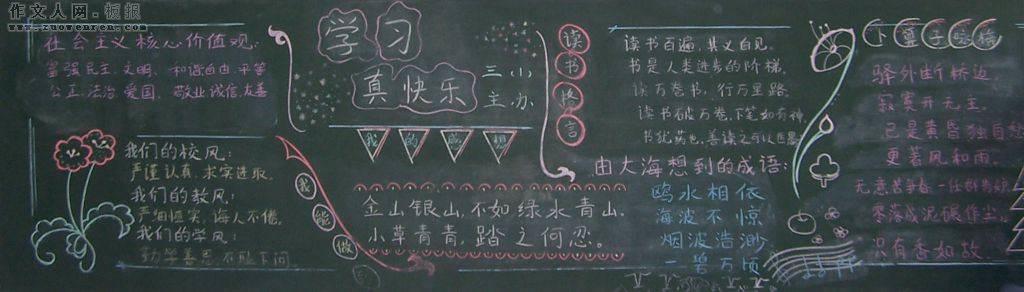 作文人网·板报
www.zuowenren.com
社会主义核心价值观:
富强民主 文明 和谐自由 平等
公正 法治 爱国 敬业 诚信 友善
我们的校风:
严谨认真 求实进取
我们的教风:
诲人不倦
我们的学风:
勤学善思 不耻下问
学习
真快乐
三(小)
主办
我的
我能做
金山银山,不如绿水青山.
小草青青,踏之何忍。
读书
言
读书百遍,其义自见。
书是人类进步的阶梯。
读万卷书,行万里路
读书破万卷,下笔如有神
书犹药也,善读之可以医愚
由大海想到的成语:
鸥水相依
海波不惊
烟波浩渺
一碧万顷
卜算子咏梅
驿外断桥边
寂寞开无主
已是黄昏独自愁
更著风和雨
无意苦争春 一任群芳妒
零落成泥碾作尘
只有香如故